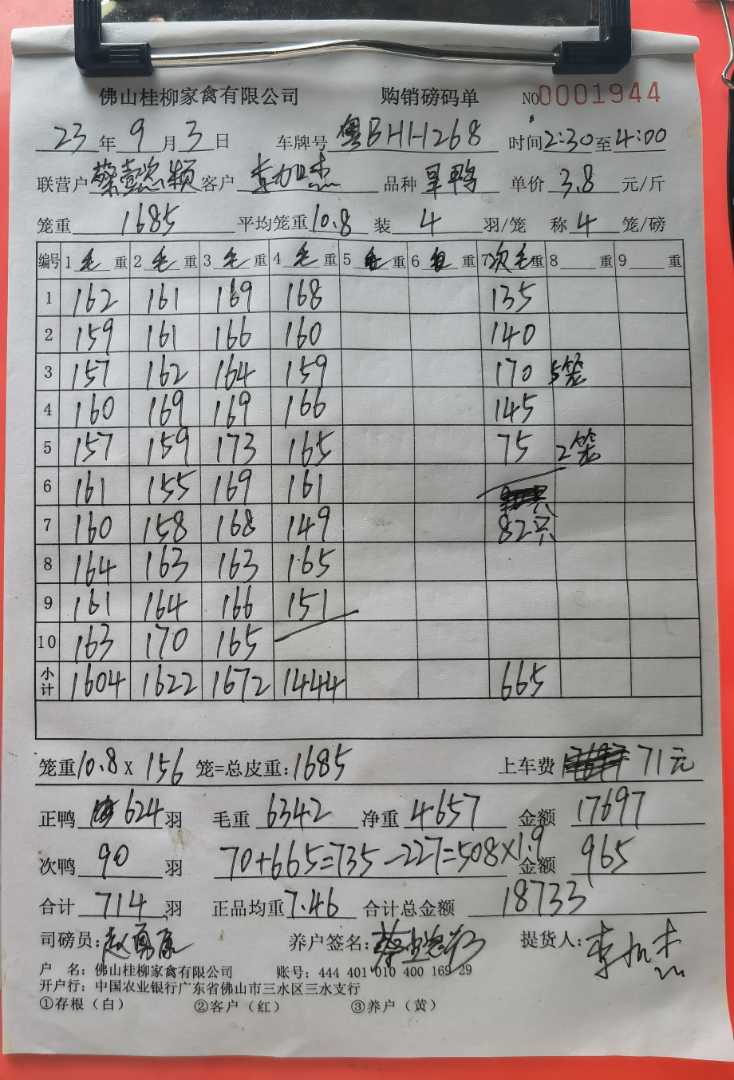 佛山桂柳家禽有限公司 购销磅码单 No0001944
23年9月3日 车牌号 粤BHH268 时间2:30至4:00
联营户 蔡懿颖 客户 李加杰 品种 旱鸭 单价 3.8 元/斤
笼重 1685 平均笼重10.8 装 4 羽/笼 称 4 笼/磅
编号 1毛重 2毛重 3毛重 4毛重 5毛重 6重 7次毛重 8重 9重
1 162 161 169 168 135
2 159 161 166 160 140
3 157 162 164 159 170 5笼
4 160 169 169 166 145
5 157 159 173 165 75 2笼
6 161 155 169 161
7 160 158 168 149 82只
8 164 163 163 165
9 161 164 166 151
10 163 170 165
小计 1604 1622 1672 1444 665
笼重10.8×156笼=总皮重:1685 上车费 71元
正鸭 624羽 毛重 6342 净重 4657 金额 17697
次鸭 90 羽 70+665=735-227=508×1.9 金额 965
合计 714 羽 正品均重7.46 合计总金额 18733
司磅员: 养户签名: 提货人:李加杰
户 名:佛山桂柳家禽有限公司 账号:444 401 010 400 169 29
开户行:中国农业银行广东省佛山市三水区三水支行
①存根(白) ②客户(红) ③养户(黄)